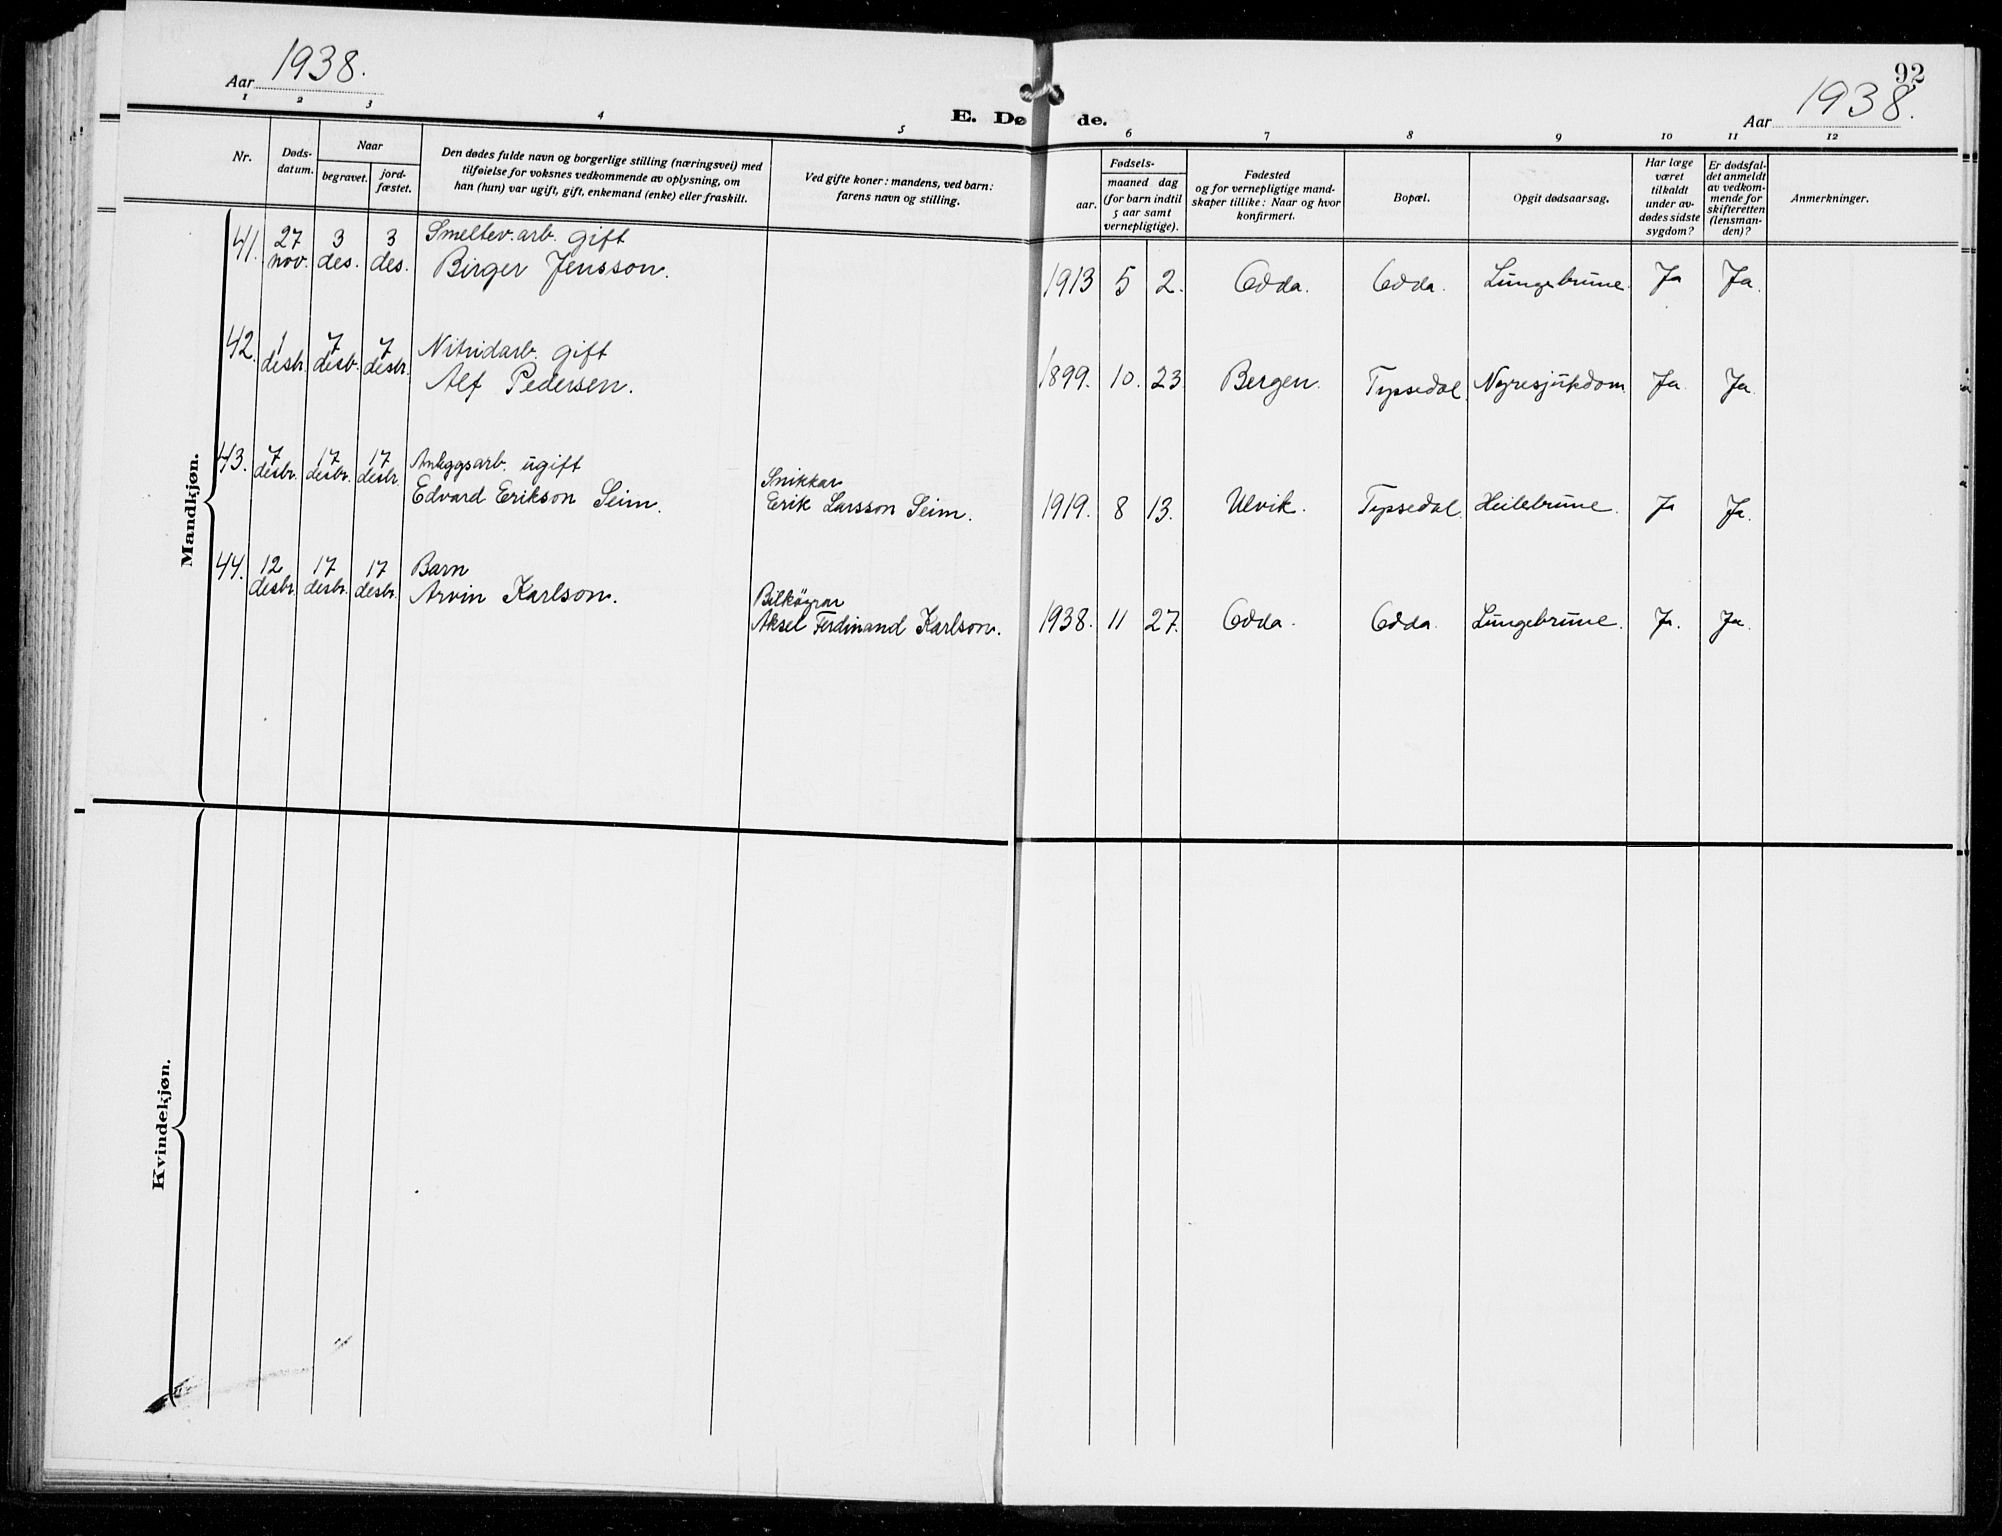 Aar 1938.
E. Døde.
92
Aar 1938.
1 2 3 4 5 6 7 8 9 10 11 12
Nr.
Døds-
datum.
Naar
begravet.
jord-
fæstet.
Den dødes fulde navn og borgerlige stilling (næringsvei) med
tilføielse for voksnes vedkommende av oplysning, om
han (hun) var ugift, gift, enkemand (enke) eller fraskilt.
Ved gifte koner: mandens, ved barn:
farens navn og stilling.
Fødsels-
aar.
maaned dag
(for barn indtil
5 aar samt
vernepligtige).
Fødested
og for vernepligtige mand-
skaper tillike: Naar og hvor
konfirmert.
Bopæl.
Opgit dødsaarsag.
Har læge
været
tilkaldt
under av-
dødes sidste
sygdom?
Er dødsfal-
det anmeldt
av vedkom-
mende for
skifteretten
(lensman-
den)?
Anmerkninger.
Mandkjøn.
41. 27 3 3 Smeltev. arb. gift
nov. des. des. Birger Jensson. 1913 5 2. Odda. Odda. Lungebrune. Ja Ja.
42. 1 7 7 Nitridarb. gift
desbr. desb. desbr. Alf Pedersen. 1899. 10. 23 Bergen. Tyssedal. Nyresjukdom Ja. Ja.
43. 7 17 17 Anleggsarb. ugift Snikkar
desbr. desbr. desbr. Edvard Erikson Seim. Erik Larsson Seim. 1919. 8 13. Ulvik. Tyssedal. Heilebrune. Ja Ja.
44. 12 17 17 Barn Bilkøyrar
desbr. desbr. desbr. Arvin Karlson. Aksel Ferdinand Karlson. 1938. 11 27. Odda. Odda. Lungebrune. Ja. Ja.
Kvindekjøn.